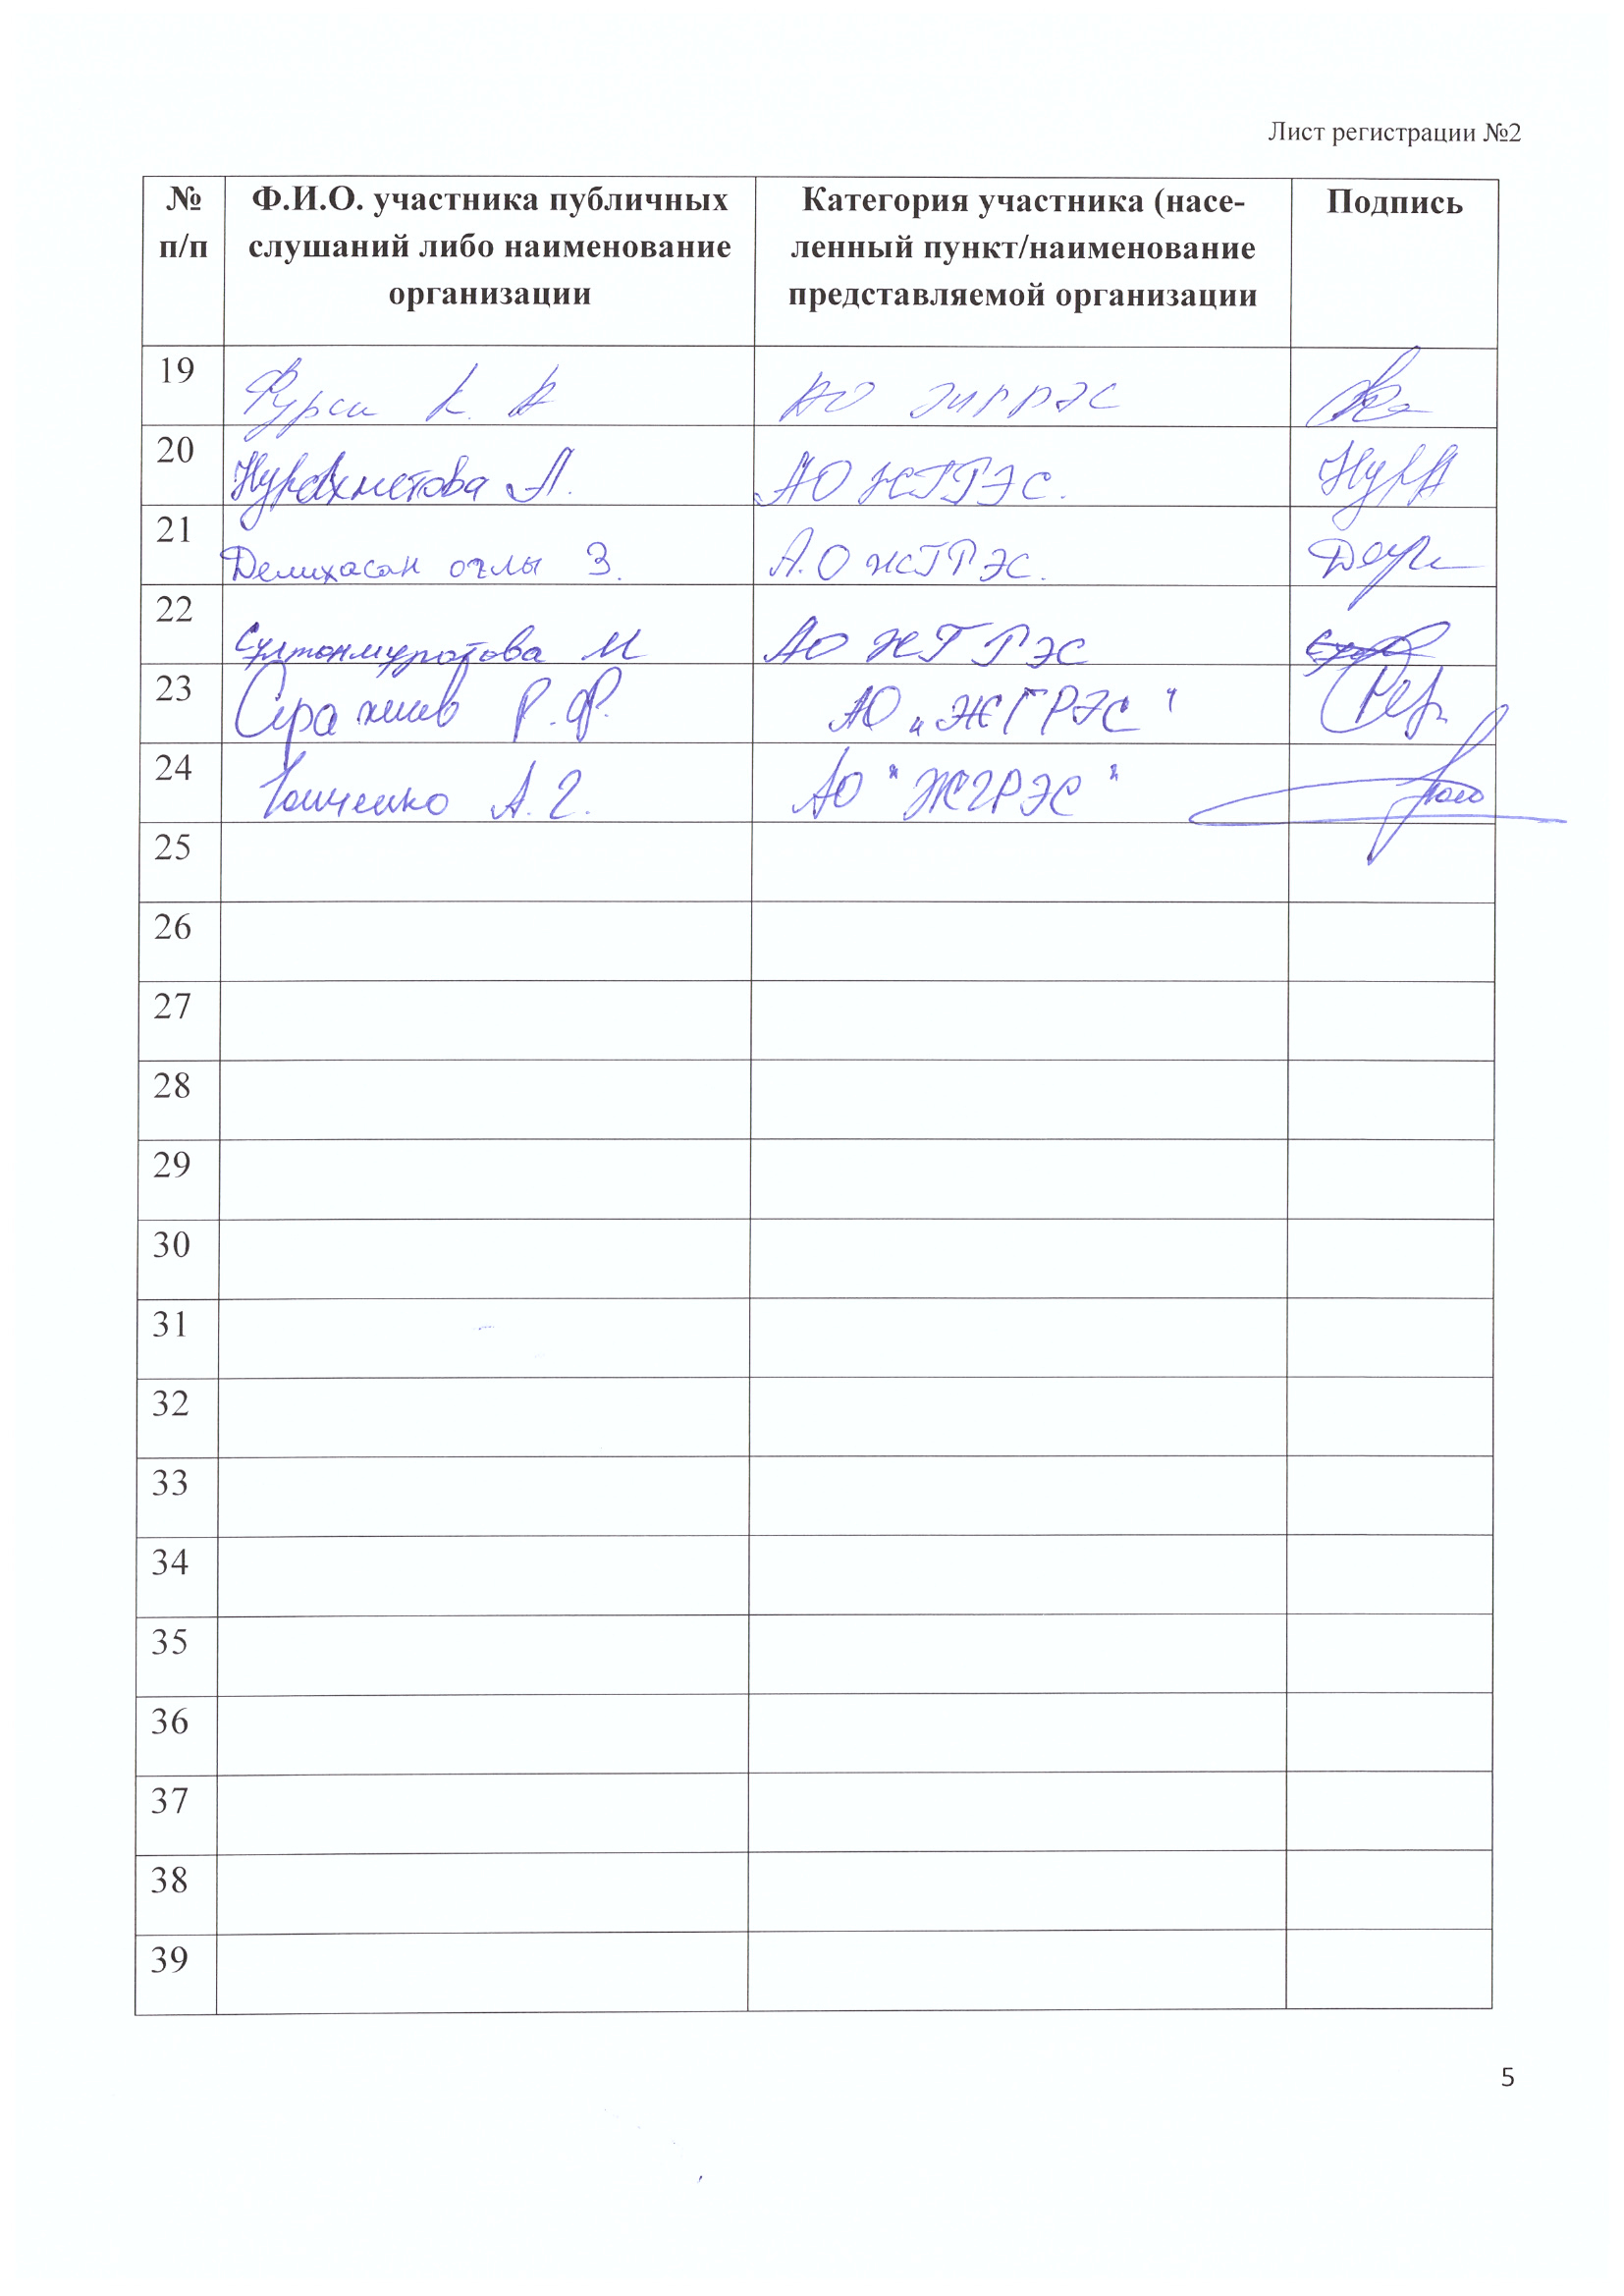 Лист регистрации №2
№ п/п
Ф.И.О. участника публичных
слушаний либо наименование
организации
Категория участника (насе-
ленный пункт/наименование
представляемой организации
Подпись
19 Фурси К. А АО
20 Нурахметова Л. АО ЖГРЭС.
21 Делихасан оглы З. А.О ЖГРЭС.
22 Султонмуротова М АО ЖГРЭС
23 Р.Ф. АО „ЖГРЭС"
24 А.Г. АО "ЖГРЭС"
25
26
27
28
29
30
31
32
33
34
35
36
37
38
39
5